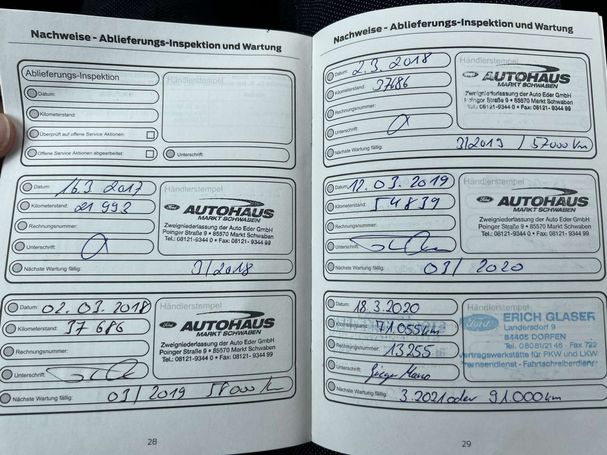 Nachweise - Ablieferungs-Inspektion und Wartung
Ablieferungs-Inspektion
Händlerstempel
Datum:
Kilometerstand:
Überprüft auf offene Service Aktionen
Offene Service Aktionen abgearbeitet
Unterschrift:
Datum: 16.3 2017
Kilometerstand: 21 993
Rechnungsnummer:
Unterschrift:
Nächste Wartung fällig: 3/2018
Händlerstempel
Ford AUTOHAUS
MARKT SCHWABEN
Zweigniederlassung der Auto Eder GmbH
Poinger Straße 9 • 85570 Markt Schwaben
Tel.: 08121-9344 0 • Fax: 08121- 9344 99
Datum: 02.03.2018
Kilometerstand: 37 686
Rechnungsnummer:
Unterschrift:
Nächste Wartung fällig: 03/2019 58000 km
Händlerstempel
Ford AUTOHAUS
MARKT SCHWABEN
Zweigniederlassung der Auto Eder GmbH
Poinger Straße 9 • 85570 Markt Schwaben
Tel.: 08121-9344 0 • Fax: 08121- 9344 99
28
Nachweise - Ablieferungs-Inspektion und Wartung
Datum: 2.3.2018
Kilometerstand: 37686
Rechnungsnummer:
Unterschrift:
Nächste Wartung fällig: 3/2019 / 57000 km
Händlerstempel
Ford AUTOHAUS
MARKT SCHWABEN
Zweigniederlassung der Auto Eder GmbH
Poinger Straße 9 • 85570 Markt Schwaben
Tel.: 08121-9344 0 • Fax: 08121- 9344 99
Datum: 12.03.2019
Kilometerstand: 54839
Rechnungsnummer:
Unterschrift:
Nächste Wartung fällig: 03/2020
Händlerstempel
Ford AUTOHAUS
MARKT SCHWABEN
Zweigniederlassung der Auto Eder GmbH
Poinger Straße 9 • 85570 Markt Schwaben
Tel.: 08121-9344 0 • Fax: 08121- 9344 99
Datum: 18.3.2020
Kilometerstand: 71.055km
Rechnungsnummer: 13255
Unterschrift:
Nächste Wartung fällig: 3.2021 oder 91.000km
Händlerstempel
Ford ERICH GLASER
Landersdorf 9
84405 DORFEN
Tel. 08081/2146 - Fax 722
Vertragswerkstätte für PKW und LKW
Fahrtschreiberdienst
29